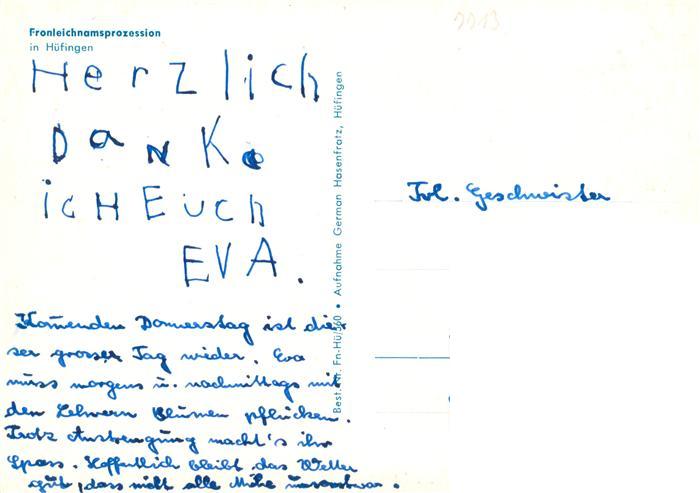 Fronleichnamsprozession
in Hüfingen
Herzlich
Danke
ich Euch
EVA.
Komenden Donnerstag ist die-
ser grosser Tag wieder. Eva
muss morgens u. nachmittags mit
den Lehrern Blumen pflücken.
Trotz Anstrengung macht's ihr
Spass. Hoffentlich bleibt das Wetter
gut, dass nicht alle Mühe umsonst war.
Best.-Nr. Fn-Hü/560 • Aufnahme German Hasenfratz, Hüfingen
Frl. Geschwister